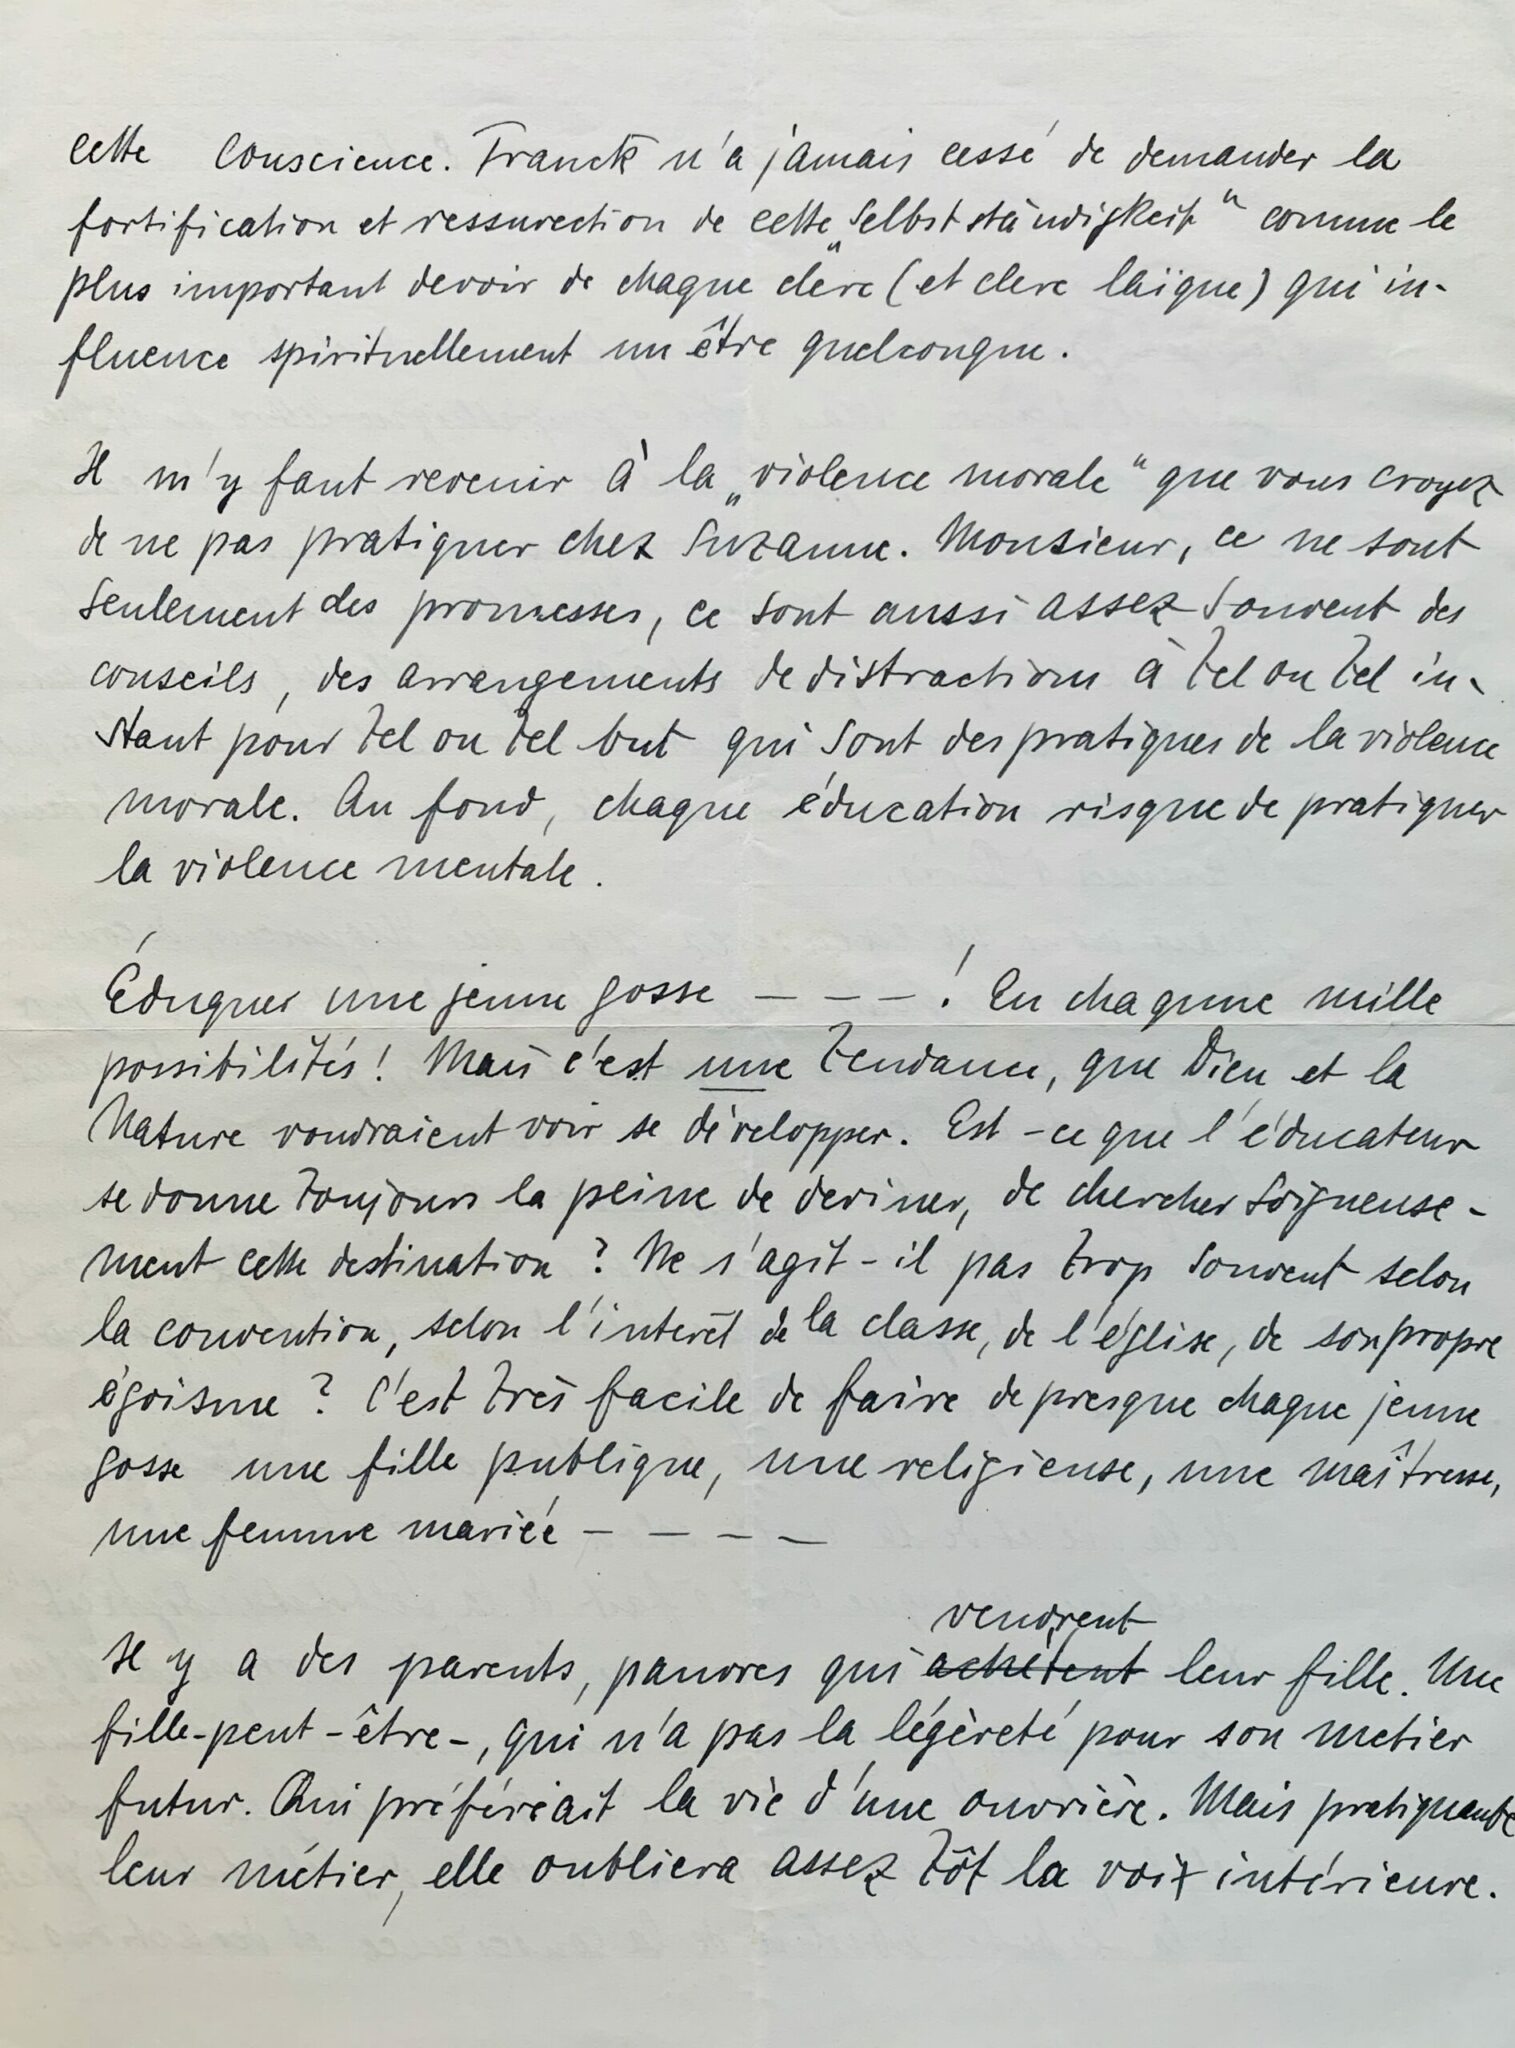 cette conscience. Franck n'a jamais cessé de demander la
fortification et ressurection de cette „Selbstständigkeit“ comme le
plus important devoir de chaque clerc (et clerc laïque) qui in-
fluence spirituellement un être quelconque.
Il m'y faut revenir à la „violence morale“ que vous croyez
de ne pas pratiquer chez Suzanne. Monsieur, ce ne sont
seulement des promesses, ce sont aussi assez souvent des
conseils, des arrangements de distractions à tel ou tel in-
stant pour tel ou tel but qui sont des pratiques de la violence
morale. Au fond, chaque éducation risque de pratiquer
la violence mentale.
Éduquer une jeune gosse — — — ! En chaqune mille
possibilités! Mais c'est une tendance, que Dieu et la
Nature voudraient voir se développer. Est-ce que l'éducateur
se donne toujours la peine de deviner, de chercher soigneuse-
ment cette destination? Ne s'agit-il pas trop souvent selon
la convention, selon l'interêt de la classe, de l'église, de son propre
égoisme? C'est très facile de faire de presque chaque jeune
gosse une fille publique, une religieuse, une maîtresse,
une femme mariée — — — —
Il y a des parents, pauvres qui achètent vendrent leur fille. Une
fille-peut-être-, qui n'a pas la légèreté pour son metier
futur. Qui préféreait la vie d'une ouvrière. Mais pratiquante
leur métier, elle oubliera assez tôt la voix intérieure.